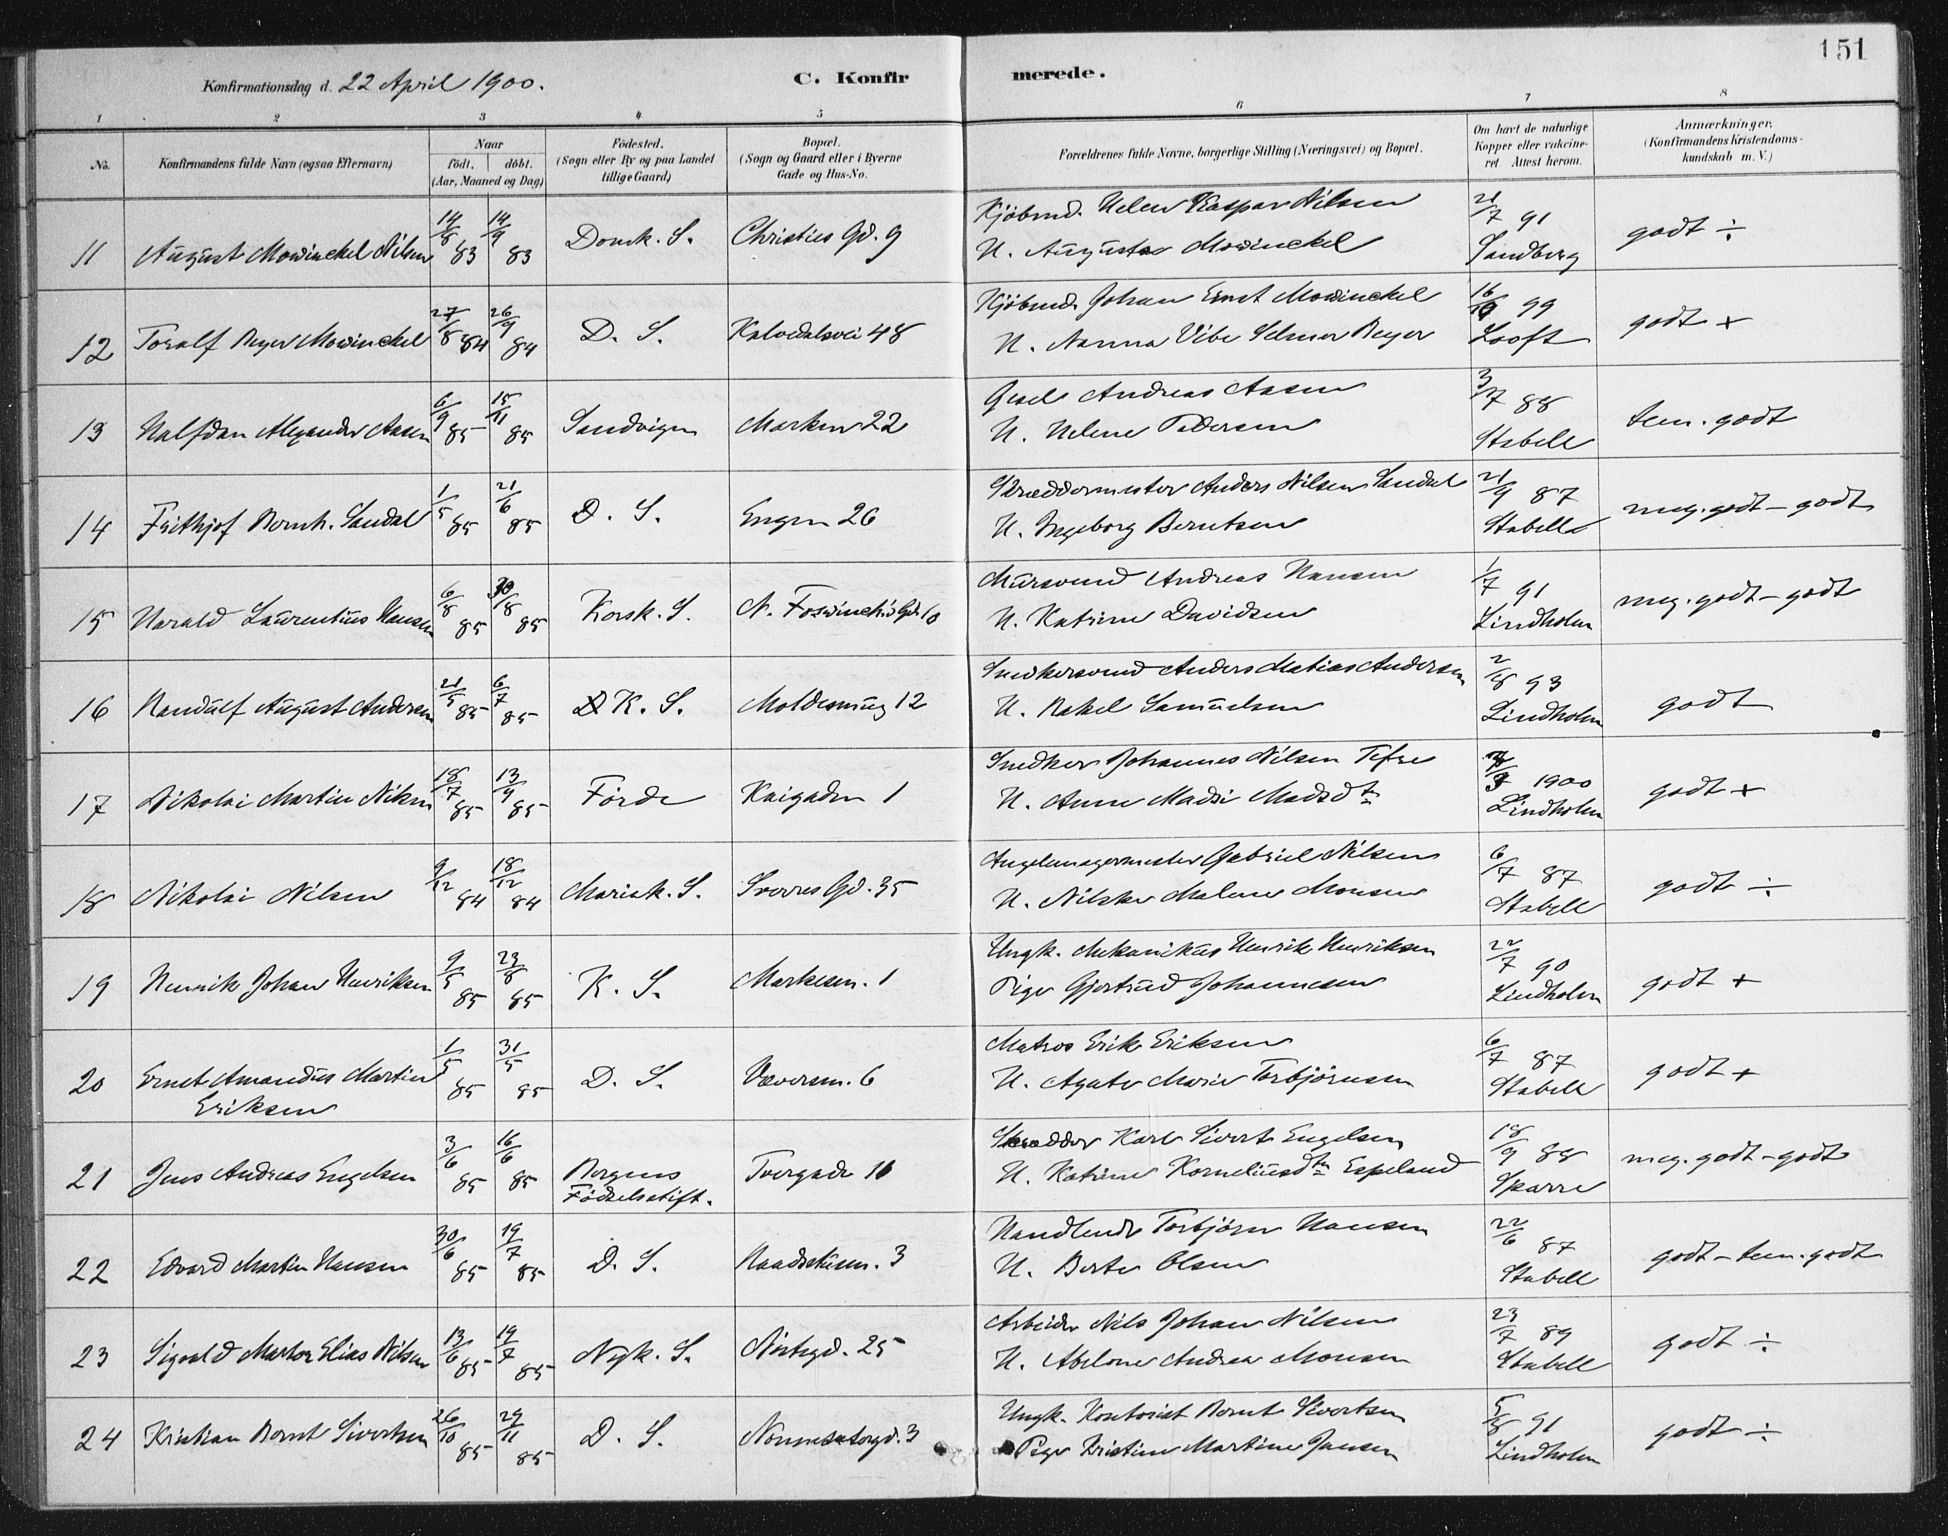 151
Konfirmationsdag d. 22 April 1900.
C. Konfirmerede.
1 2 3 4 5 6 7 8
No.
Konfirmandens fulde Navn (ogsaa Efternavn)
Naar
födt. döbt.
(Aar, Maaned og Dag)
Födested.
(Sogn eller By og paa Landet
tillige Gaard)
Bopæl.
(Sogn og Gaard eller i Byerne
Gade og Hus-No.
Forældrenes fulde Navne, borgerlige Stilling (Næringsvei) og Bopæl.
Om havt de naturlige
Kopper eller vakcine-
ret Attest herom.
Anmærkninger.
(Konfirmandens Kristendoms-
kundskab m. V.)
11 August Mowinckel Nilsen 14/8 83 14/9 83 Domk. S. Christies Gd. 9
Kjøbmd. Kaspar Nilsen
H. Augusta Mowinckel
21/7 91 Sandberg godt ÷
12 Toralf Beyer Mowinckel 27/8 84 26/9 84 D. S. Kalvedalsvei 48
Kjøbmd. Johan Ernst Mowinckel
H. Nanna Vibe Selmer Beyer
99 Looft godt +
13 Halfdan Alexander Aasen 6/9 85 15/11 85 Sandvigen Marken 22
Andreas Aasen
H. Helene Pedersen
3/7 88 Stabell tem. godt
14 Frithjof Bernh. Sandal 1/5 85 21/6 85 D. S. Engen 26
Skræddermester Anders Nilsen Sandal
H. Ingeborg Berntsen
21/9 87 Stabell meg. godt – godt
15 Harald Laurentius Hansen 6/8 85 30/8 85 Korsk. S. N. Foswinckels Gd. 10
Mursvend Andreas Hansen
H. Katrine Davidsen
1/7 91 Lindholm meg. godt – godt
16 Randulf August Andersen 21/5 85 6/7 85 K. S. Moldesmug 12
Snedkersvend Anders Matias Andersen
H. Rakel Samuelsen
2/8 93 Lindholm godt
17 Nikolai Martin Nilsen 18/7 85 13/9 85 Förde Kaigaden 1
Snedker Johannes Nilsen Tefre
H. Anne Madsdtr
1900 Lindholm godt +
18 Nikolai Nilsen 9/12 84 18/12 84 Mariak. S. Sverres Gd. 35
Gabriel Nilsen
H. Malene Monsen
6/7 87 Stabell godt ÷
19 Henrik Johan Henriksen 9/5 85 23/8 85 K. S. Markesm. 1
Ungk. Mekanikus Henrik Henriksen
Pige Gjertrud Johannesen
22/7 90 Lindholm godt +
20 Ernst Amandus Martin 1/5 85 31/5 85 D. S. Væversm. 6
Eriksen
Matros Erik Eriksen
H. Agate Marie Torbjörnsen
6/7 87 Stabell godt +
21 Jens Andreas Engelsen 3/6 85 16/6 85 Bergens Tvergade 16
Födselsstift.
Skrædder Karl Sivert Engelsen
H. Katrine Korneliusdtr Espeland
18/9 88 Sparre meg. godt – godt
22 Edvard Martin Hansen 30/6 85 19/7 85 D. S. Raadstusm. 3
Handlende Torbjörn Hansen
H. Berte Olsen
22/6 87 Stabell godt – tem. godt
23 Sigvald Elias Nilsen 13/6 85 19/7 85 Nyk. S. 25
Arbeider Nils Johan Nilsen
H. Abelone Andrea Monsen
23/7 89 Stabell godt ÷
24 Kristian Bernt Sivertsen 26/10 85 29/11 85 D. S. Nonnesætergd. 3
Ungk. Kontorist Bernt Sivertsen
Pige Kristine Martine Jansen
5/8 91 Lindholm godt ÷